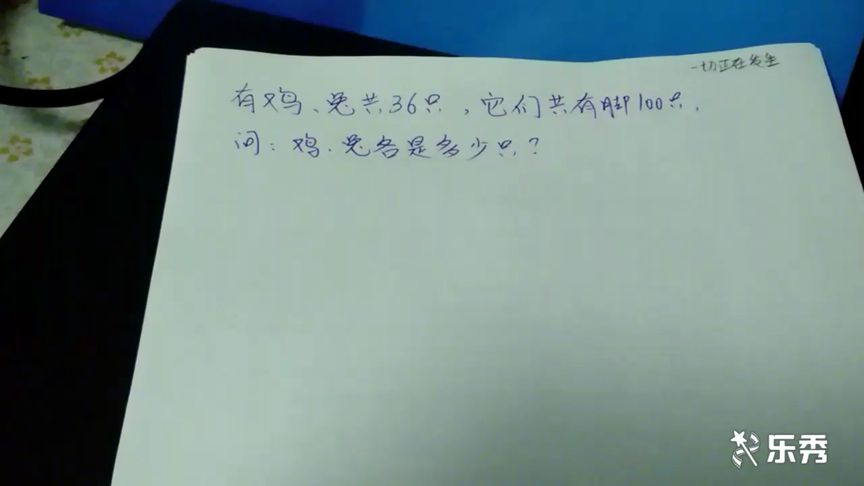 一切正在发生
有鸡、兔共36只，它们共有脚100只，
问：鸡、兔各是多少只？
乐秀